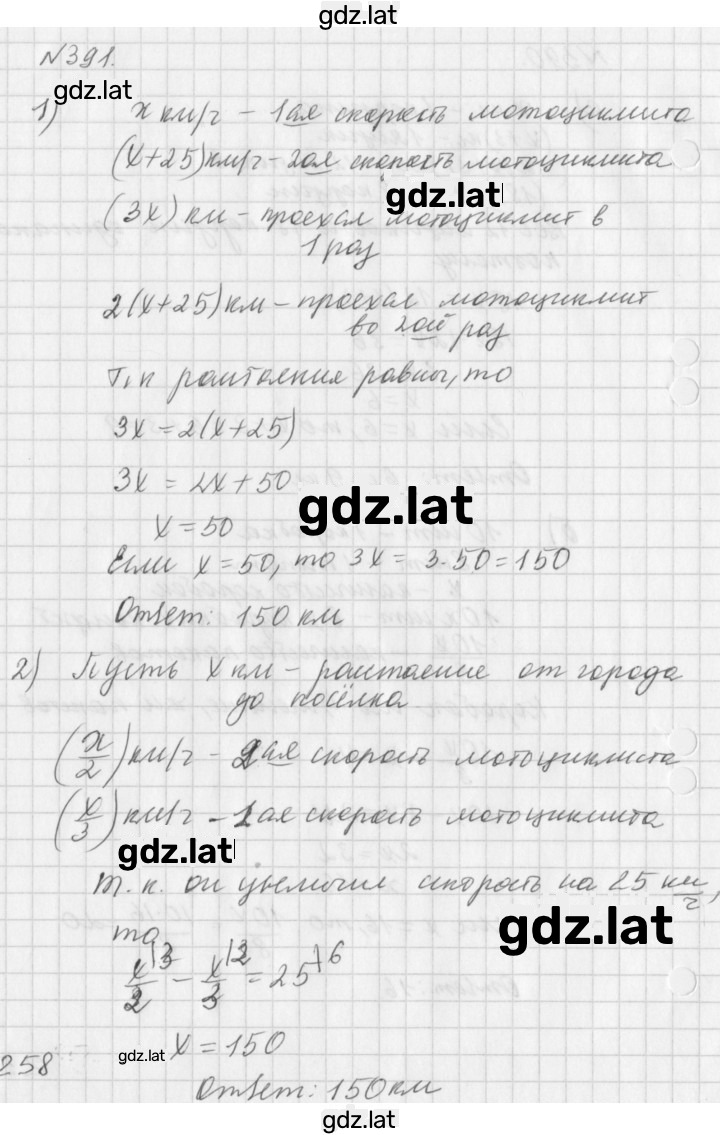 gdz.lat
№391.
gdz.lat
1) x км/г - 1ая скорость мотоциклиста
(x+25)км/г - 2ая скорость мотоциклиста
gdz.lat
(3x) км - проехал мотоциклист в
1 раз
2(x+25)км - проехал мотоциклист
во 2ой раз
Т.к расстояния равны, то
3x = 2(x+25)
3x = 2x + 50
gdz.lat
x = 50
Если x = 50, то 3x = 3·50 = 150
Ответ: 150 км
2) Пусть x км - расстояние от города
до посёлка
(x/2) км/г - 2ая скорость мотоциклиста
(x/3) км/г - 1ая скорость мотоциклиста
gdz.lat
Т.к. он увеличил скорость на 25 км/г,
gdz.lat
то
x/2|3 - x/3|2 = 25|6
gdz.lat x = 150
258
Ответ: 150 км
gdz.lat